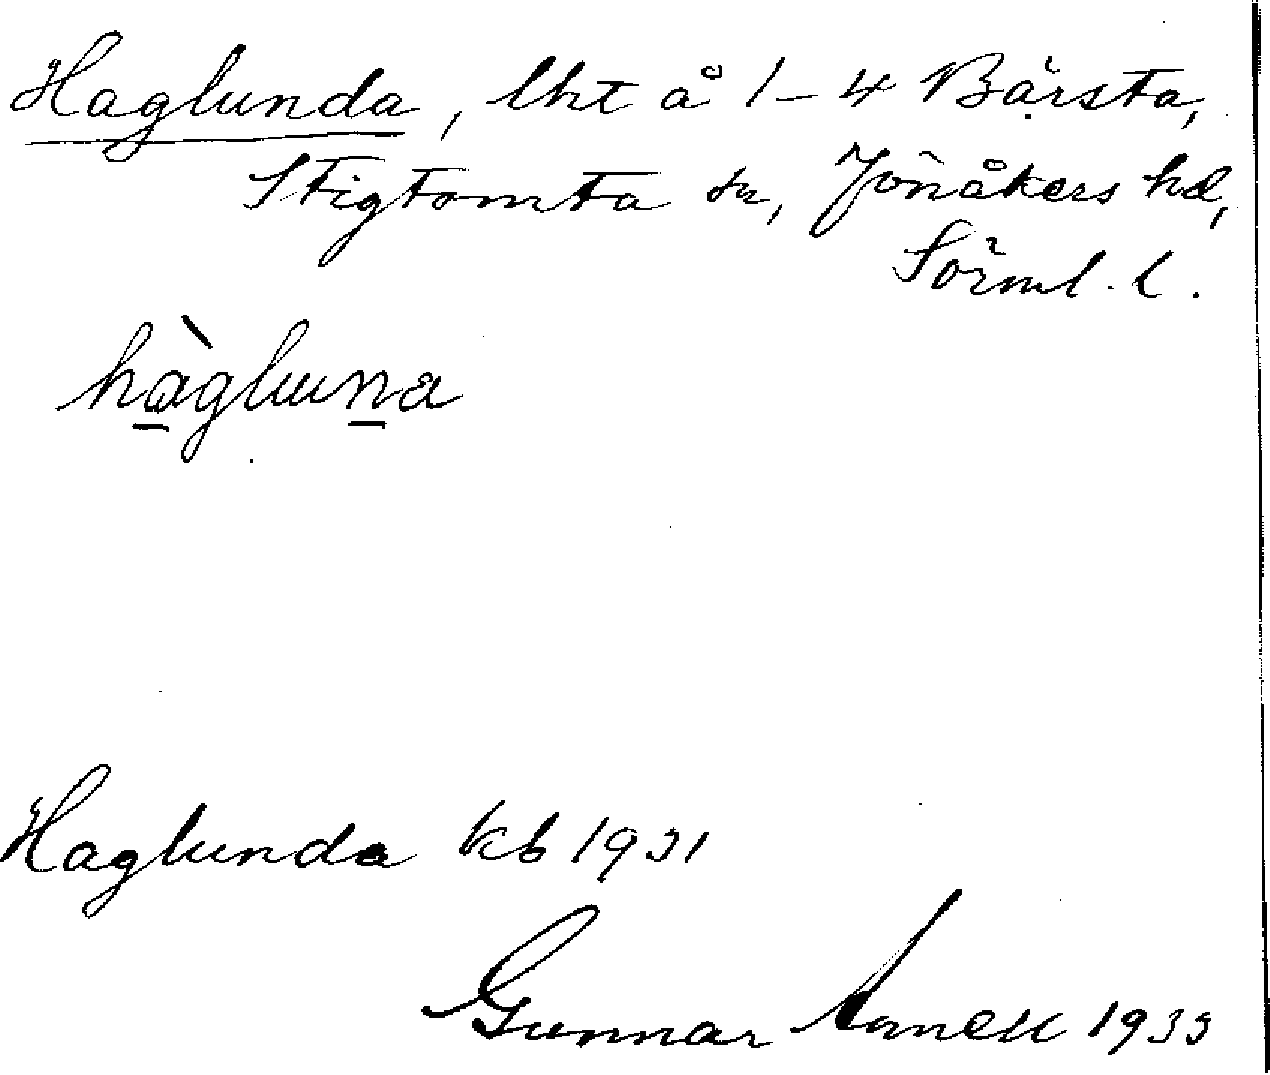 Haglunda, lht å 1-4 Bärsta,
Stigtomta sn, Jönåkers hd,
Sörml. l.
hàgluna
Haglunda kb 1931
Gunnar 1933